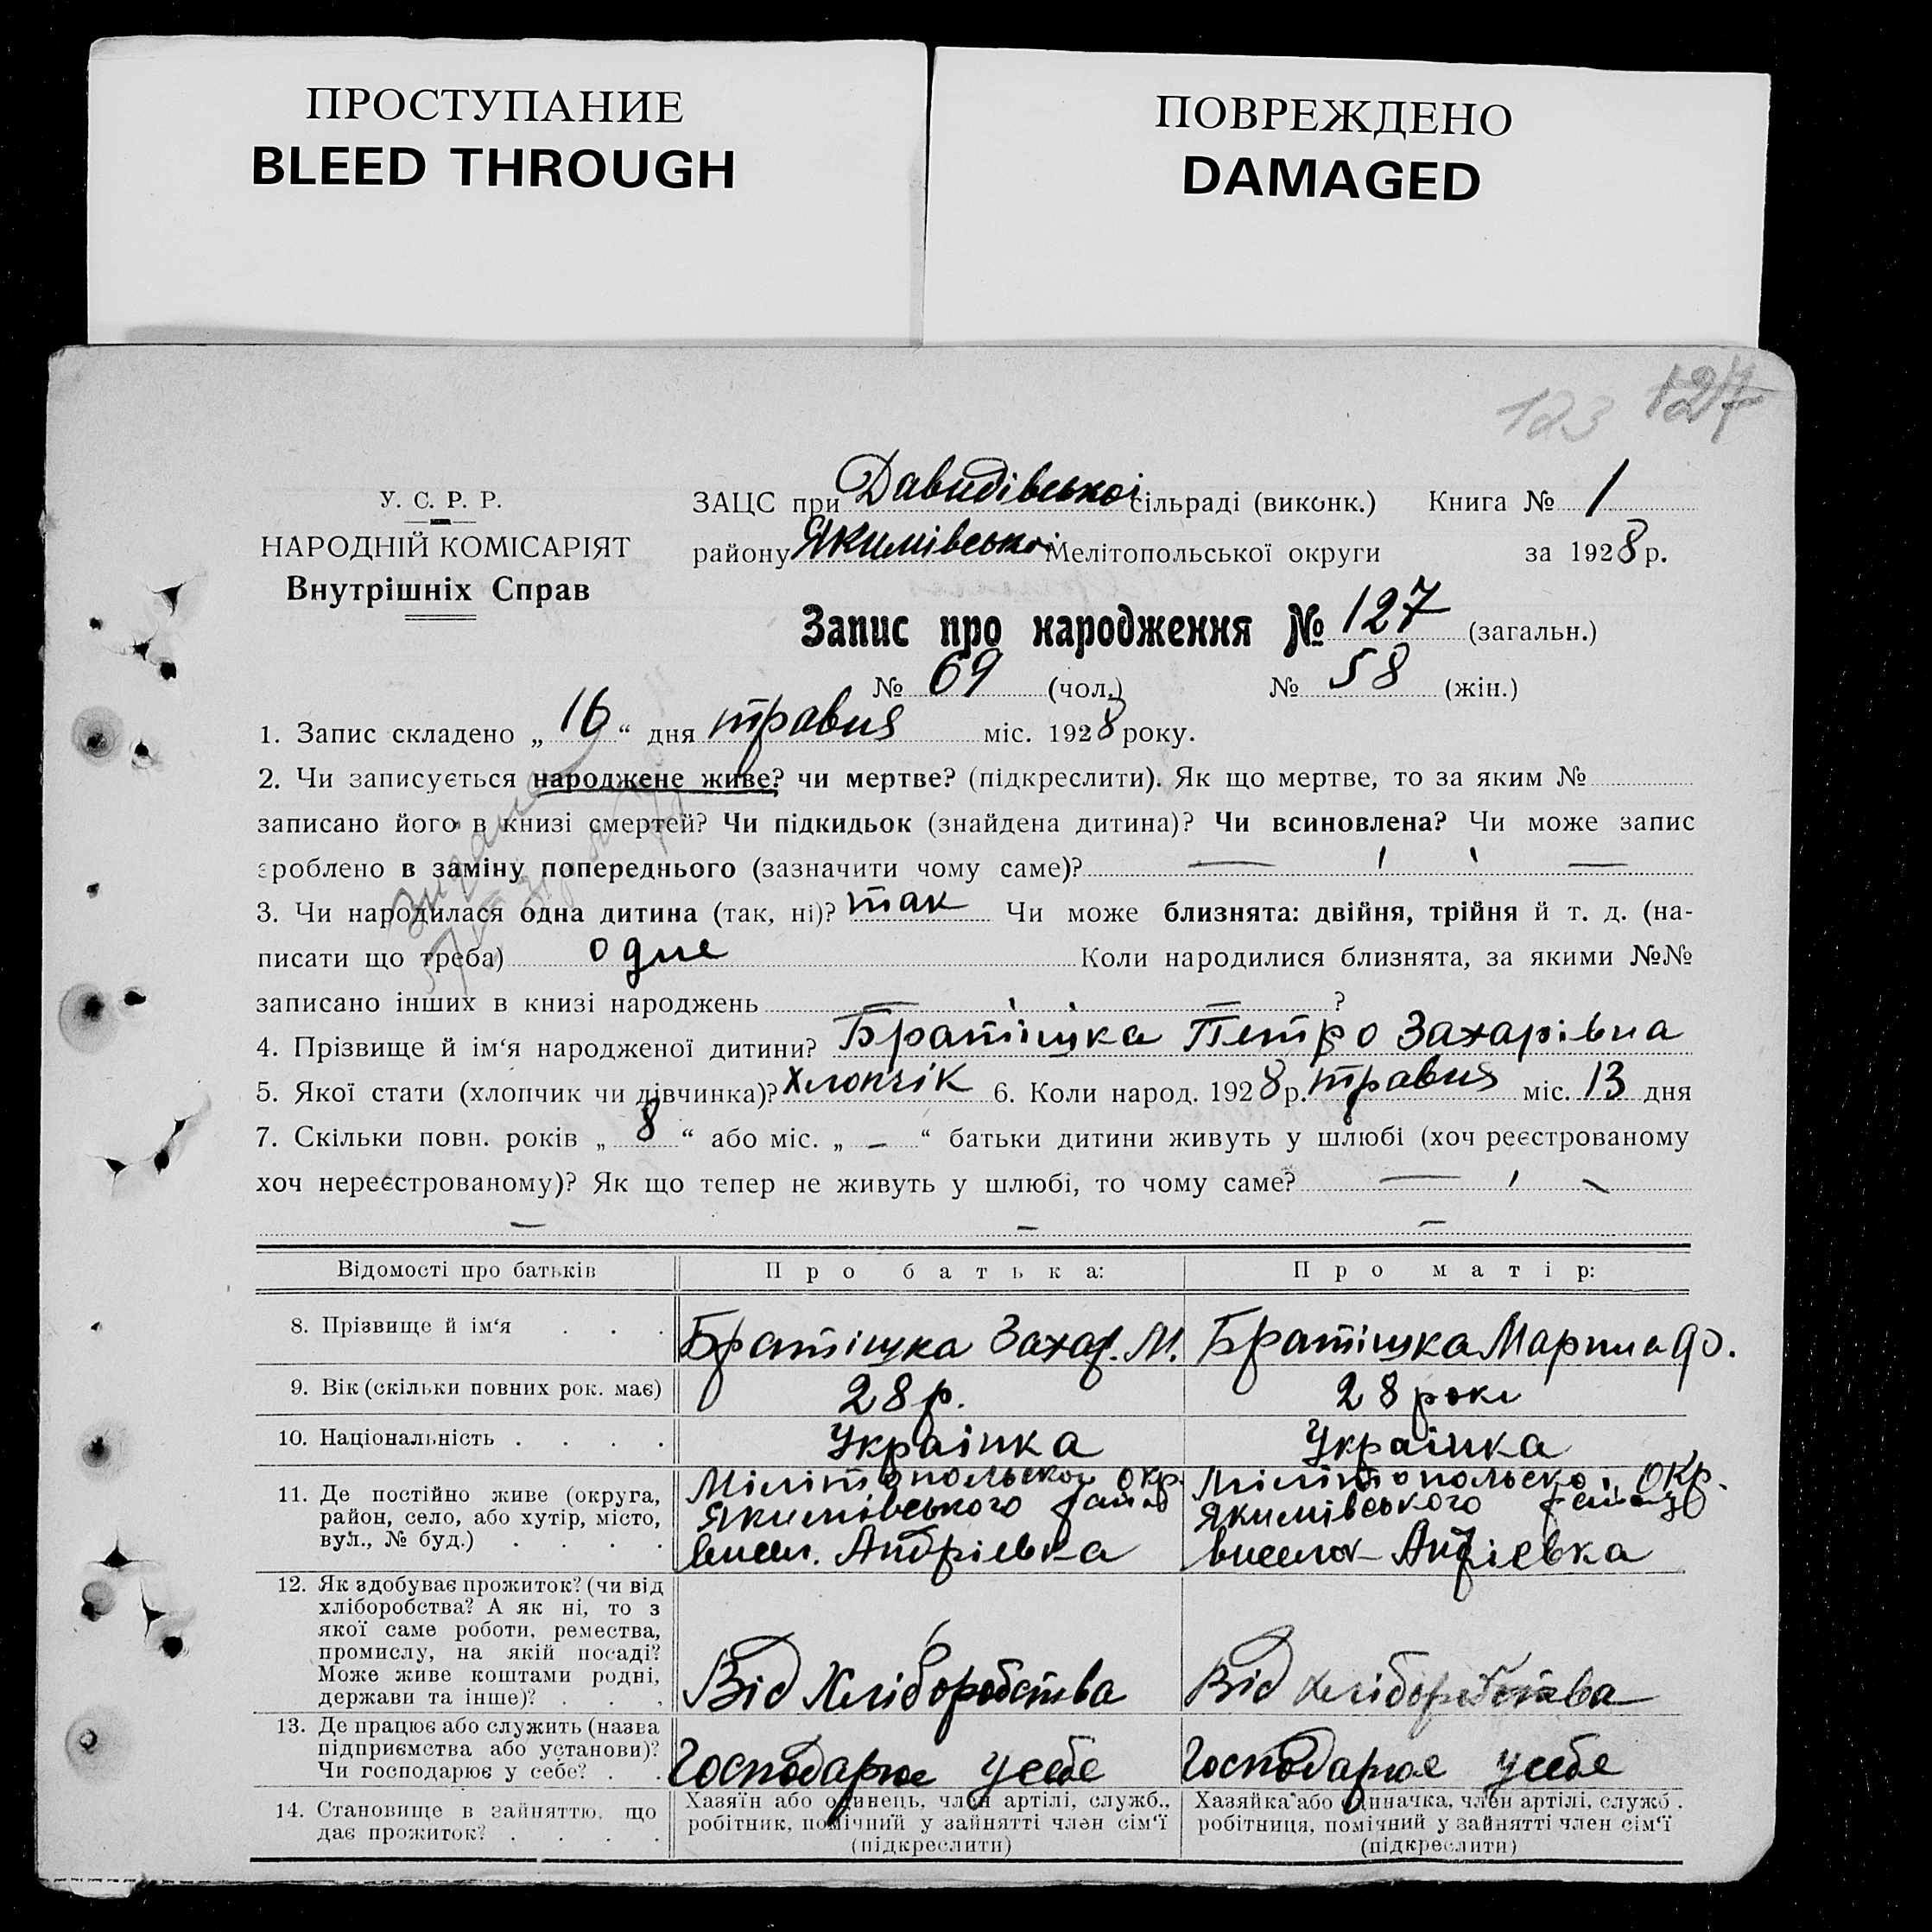 ПРОСТУПАНИЕ
BLEED THROUGH
ПОВРЕЖДЕНО
DAMAGED
123 127
У. С. Р. Р.
НАРОДНІЙ КОМІСАРІЯТ
Внутрішніх Справ
ЗАЦС при Давидівської сільраді (виконк.) Книга № 1
району Якимівської Мелітопольської округи за 1928 р.
Запис про народження № 127 (загальн.)
№ 69 (чол.) № 58 (жін.)
1. Запис складено „ 16 “ дня травня міс. 1928 року.
2. Чи записується народжене живе? чи мертве? (підкреслити). Як що мертве, то за яким №
записано його в книзі смертей? Чи підкидьок (знайдена дитина)? Чи всиновлена? Чи може запис
зроблено в заміну попереднього (зазначити чому саме)?
3. Чи народилася одна дитина (так, ні)? так Чи може близнята: двійня, трійня й т. д. (на-
писати що треба) одне Коли народилися близнята, за якими №№
записано інших в книзі народжень ?
4. Прізвище й ім‘я народженої дитини? Братішка Петро Захарівна
5. Якої стати (хлопчик чи дівчинка)? Хлопчік 6. Коли народ. 1928 р. травня міс. 13 дня
7. Скільки повн. років „ 8 “ або міс. „ – “ батьки дитини живуть у шлюбі (хоч реєстрованому
хоч нереєстрованому)? Як що тепер не живуть у шлюбі, то чому саме?
Відомості про батьків Про батька: Про матір:
8. Прізвище й ім‘я . . . Братішка Захар. М. Братішка Марина Ф.
9. Вік (скільки повних рок. має) 28 р. 28 роки
10. Національність . . . . Українка Українка
11. Де постійно живе (округа,
район, село, або хутір, місто,
вул., № буд.) . . . .
Мілітопольской окр.
Якимівського район
висел. Андрієвка
Мілітопольской окр.
Якимівського району
виселок Андрієвка
12. Як здобуває прожиток? (чи від
хліборобства? А як ні, то з
якої саме роботи, ремества,
промислу, на якій посаді?
Може живе коштами родні,
держави та інше)? . . .
Від Хліборобства Від хліборобства
13. Де працює або служить (назва
підприємства або установи)?
Чи господарює у себе? . .
Господарює у себе Господарює у себе
14. Становище в зайняттю, що
дає прожиток? . . . .
Хазяїн або одинець, член артілі, служб.,
робітник, помічний у зайнятті член сім‘ї
(підкреслити)
Хазяйка або одиначка, член артілі, служб.
робітниця, помічний у зайнятті член сім‘ї
(підкреслити)